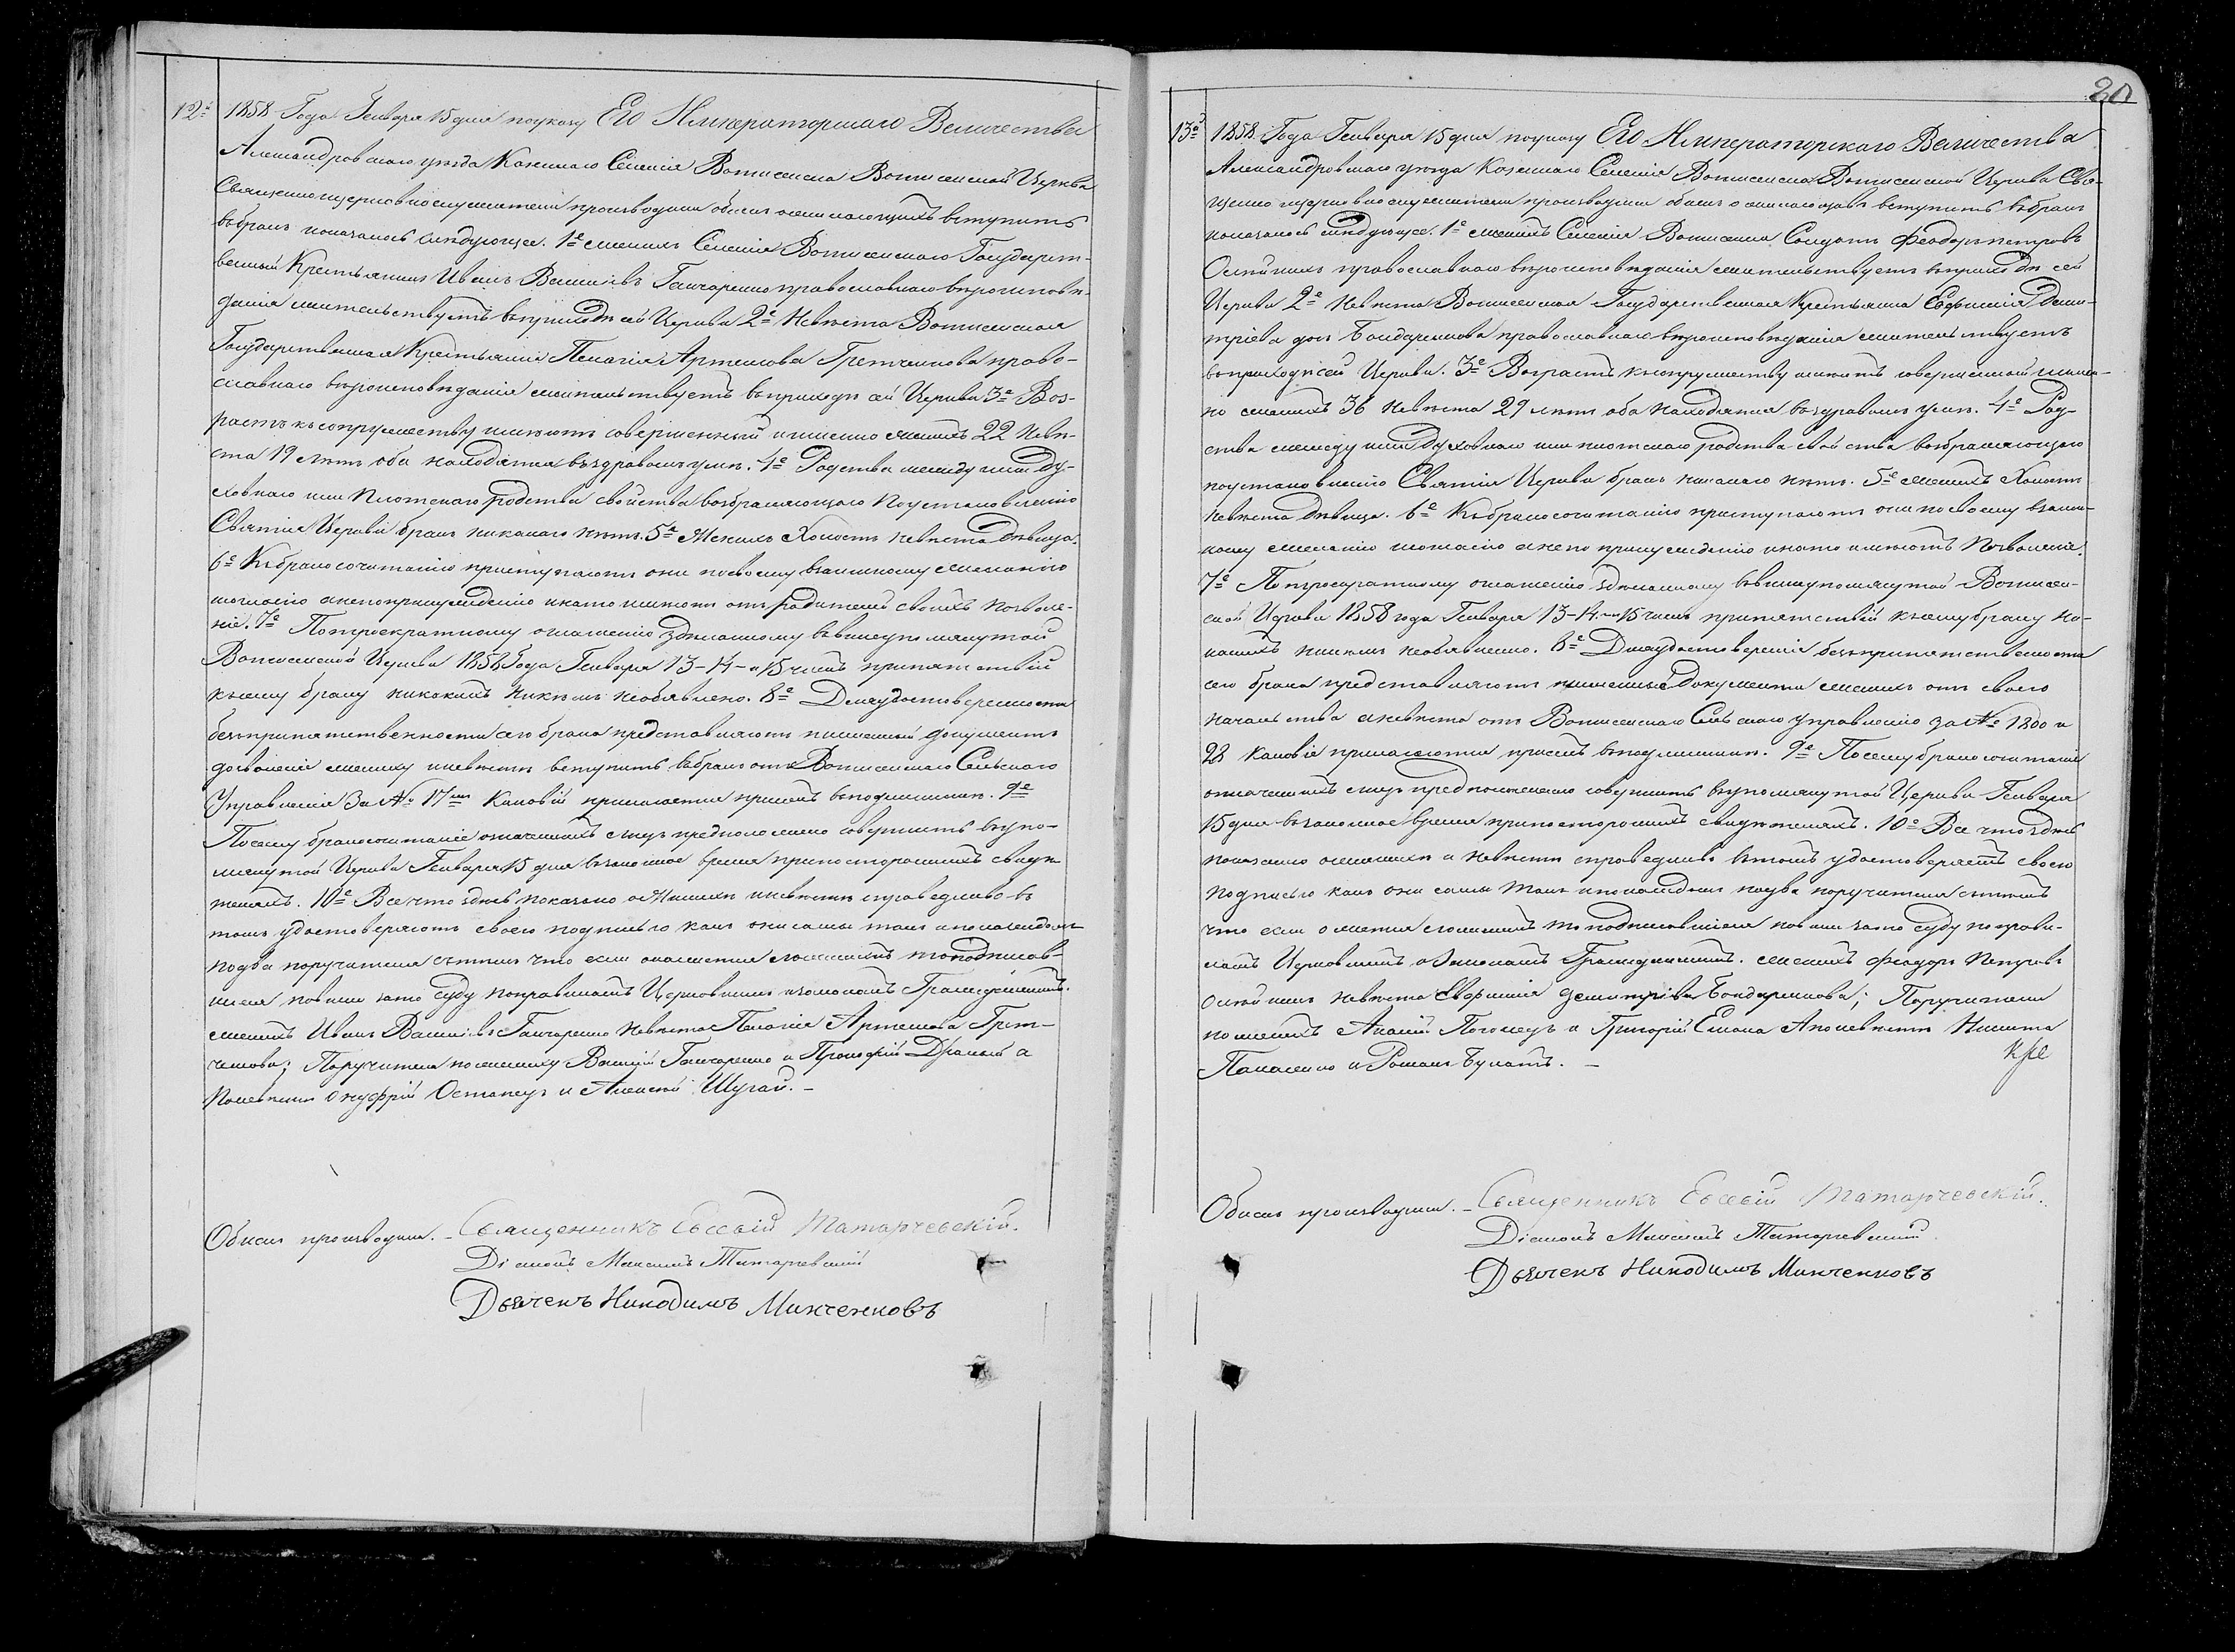 12е 1858 Года Генваря 15 дня поуказу Его Императорскаго Величества
Александровскаго уезда Казеннаго Селенія Воскресенска Воскресенской Церкви
Священноцерковнослужители производили обыскъ о желающихъ вступить
въбракъ и оказалось следующее. 1е женихъ Селенія Государст-
венный Крестьянинъ Иванъ Васильевъ Гончаренко православнаго вероиспове-
данія жительствуетъ въприходе сей Церкви 2е Невеста
Государственная Крестьянка Пелагія Артемова Гретченкова право-
славнаго вероисповеданія жительствуетъ въприходе сей Церкви 3е Воз-
растъ къ супружеству имеютъ совершенный и именно женихъ 22 Неве-
ста 19 летъ оба находятся въздравомъ уме. 4е Родства между ими ду-
ховнаго или Плотскаго родства свойства возбраняющаго Поустановленію
Святыя Церкви бракъ никакаго нетъ. 5е Женихъ Холостъ невеста Девица.
6е Къбракосочитанію приступаютъ они по своему взаимному желанію
согласію а не по принужденію и на то имеютъ отъ родителей своихъ позволе-
ніе. 7е По троекратному оглашенію зделанному въвышеупомянутой
Церкви 1858 Года Генваря 13-14-и 15 чиселъ припятствій
къ сему браку никакихъ никемъ необявлено. 8е Для удостоверенности
безъпрепятственности сего брака представляютъ письменный документъ
дозволеніе жениху и невесте вступить въбракъ отъ Сельскаго
Управленія За № 17мъ Каковый прилагается при семъ въподлиннике. 9е
Посему бракосочитаніе означенныхъ лицъ предположено совершить въупо-
мянутой Церкви Генваря 15 дня въ законное время при постороннихъ свиде-
теляхъ. 10е Все что здесь показано о Женихе и невесте справедливо въ
томъ удостоверяютъ своею подписью какъ они сами такъ и по каждомъ
подва поручителя стемъ что если окажется ложнымъ то подписав-
шіеся повинны зато суду по правиламъ Церковнымъ и законамъ Гражданскимъ.
женихъ Иванъ Васильевъ Гончаренко Невеста Пелагія Артемова Грет-
ченкова; Поручители по жениху Василій Гончаренко и Прокофій Драный а
По невесте Онуфрій Остапецъ и Алексей Шугай. -
Обыскъ производили. - Священникъ Евсевій Татарчевскій.
Діаконъ Максимъ Татарчевскій
Дьячекъ Никодимъ Минченковъ
20
13е 1858. Года Генваря 15 дня поуказу Его Императорскаго Величества
Александровскаго уезда Казеннаго Селенія Воскресенска Воскресенской Церкви Свя-
щенноцерковнослужители производили обыскъ о желающихъ вступить въбракъ
и оказалось следующее. 1е женихъ Селенія Солдатъ Феодоръ Петровъ
православнаго вероисповеданія жительствуетъ въприходе сей
Церкви 2е Невеста Государственная Крестьянка Евфимія Дими-
тріева дочь Бондаренкова православнаго вероисповеданія жительствуетъ
въприходе сей Церкви. 3е Возрастъ къ супружеству имеютъ совершенный имен-
но женихъ 36 Невеста 29 летъ оба находятся въздравомъ уме. 4е Род-
ства между ими Духовнаго или плотскаго родства свойства возбраняющаго
поустановленію Святыя Церкви бракъ никакаго нетъ. 5е женихъ Холостъ
невеста девица. 6е Къбракосочитанію приступаютъ они по своему взаим-
ному желанію согласію а не по принужденію и на то имеютъ Позволеніе.
7е По троекратному оглашенію зделанному въвышеупомянутой Воскресен-
ской Церкви 1858 года Генваря 13-14-и 15 чиселъ припятствій къ сему браку ни-
какихъ никемъ необявлено. 8е Для удостоверенія безъпрепятственности
сего брака представляютъ письменные документы женихъ отъ своего
начальства а невеста отъ Сельскаго управленія за № 1800 и
28 каковіе прилагаются при семъ въподлиннике. 9е Посему бракосочитаніе
означенныхъ лицъ предположено совершить въупомянутой Церкви Генваря
15 дня въ законное время при постороннихъ свидетеляхъ. 10е Все что здесь
показано о женихе и невесте справедливо втомъ удостоверяетъ своею
подписью какъ они сами такъ и по каждомъ подва поручителя стемъ
что если окажется ложнымъ то подписавшіеся повинны зато суду по прави-
ламъ Церковнымъ и Законамъ Гражданскимъ. женихъ Феодоръ Петровъ
невеста Евфимія Димитріева Бондаренкова; Поручители
по жениху Ананій и Григорій а по невесте Никита
Панасенко и Романъ Булатъ. -
Обыскъ производили. - Священникъ Евсевій Татарчевскій.
Діаконъ Максимъ Татарчевскій
Дьячекъ Никодимъ Минченковъ